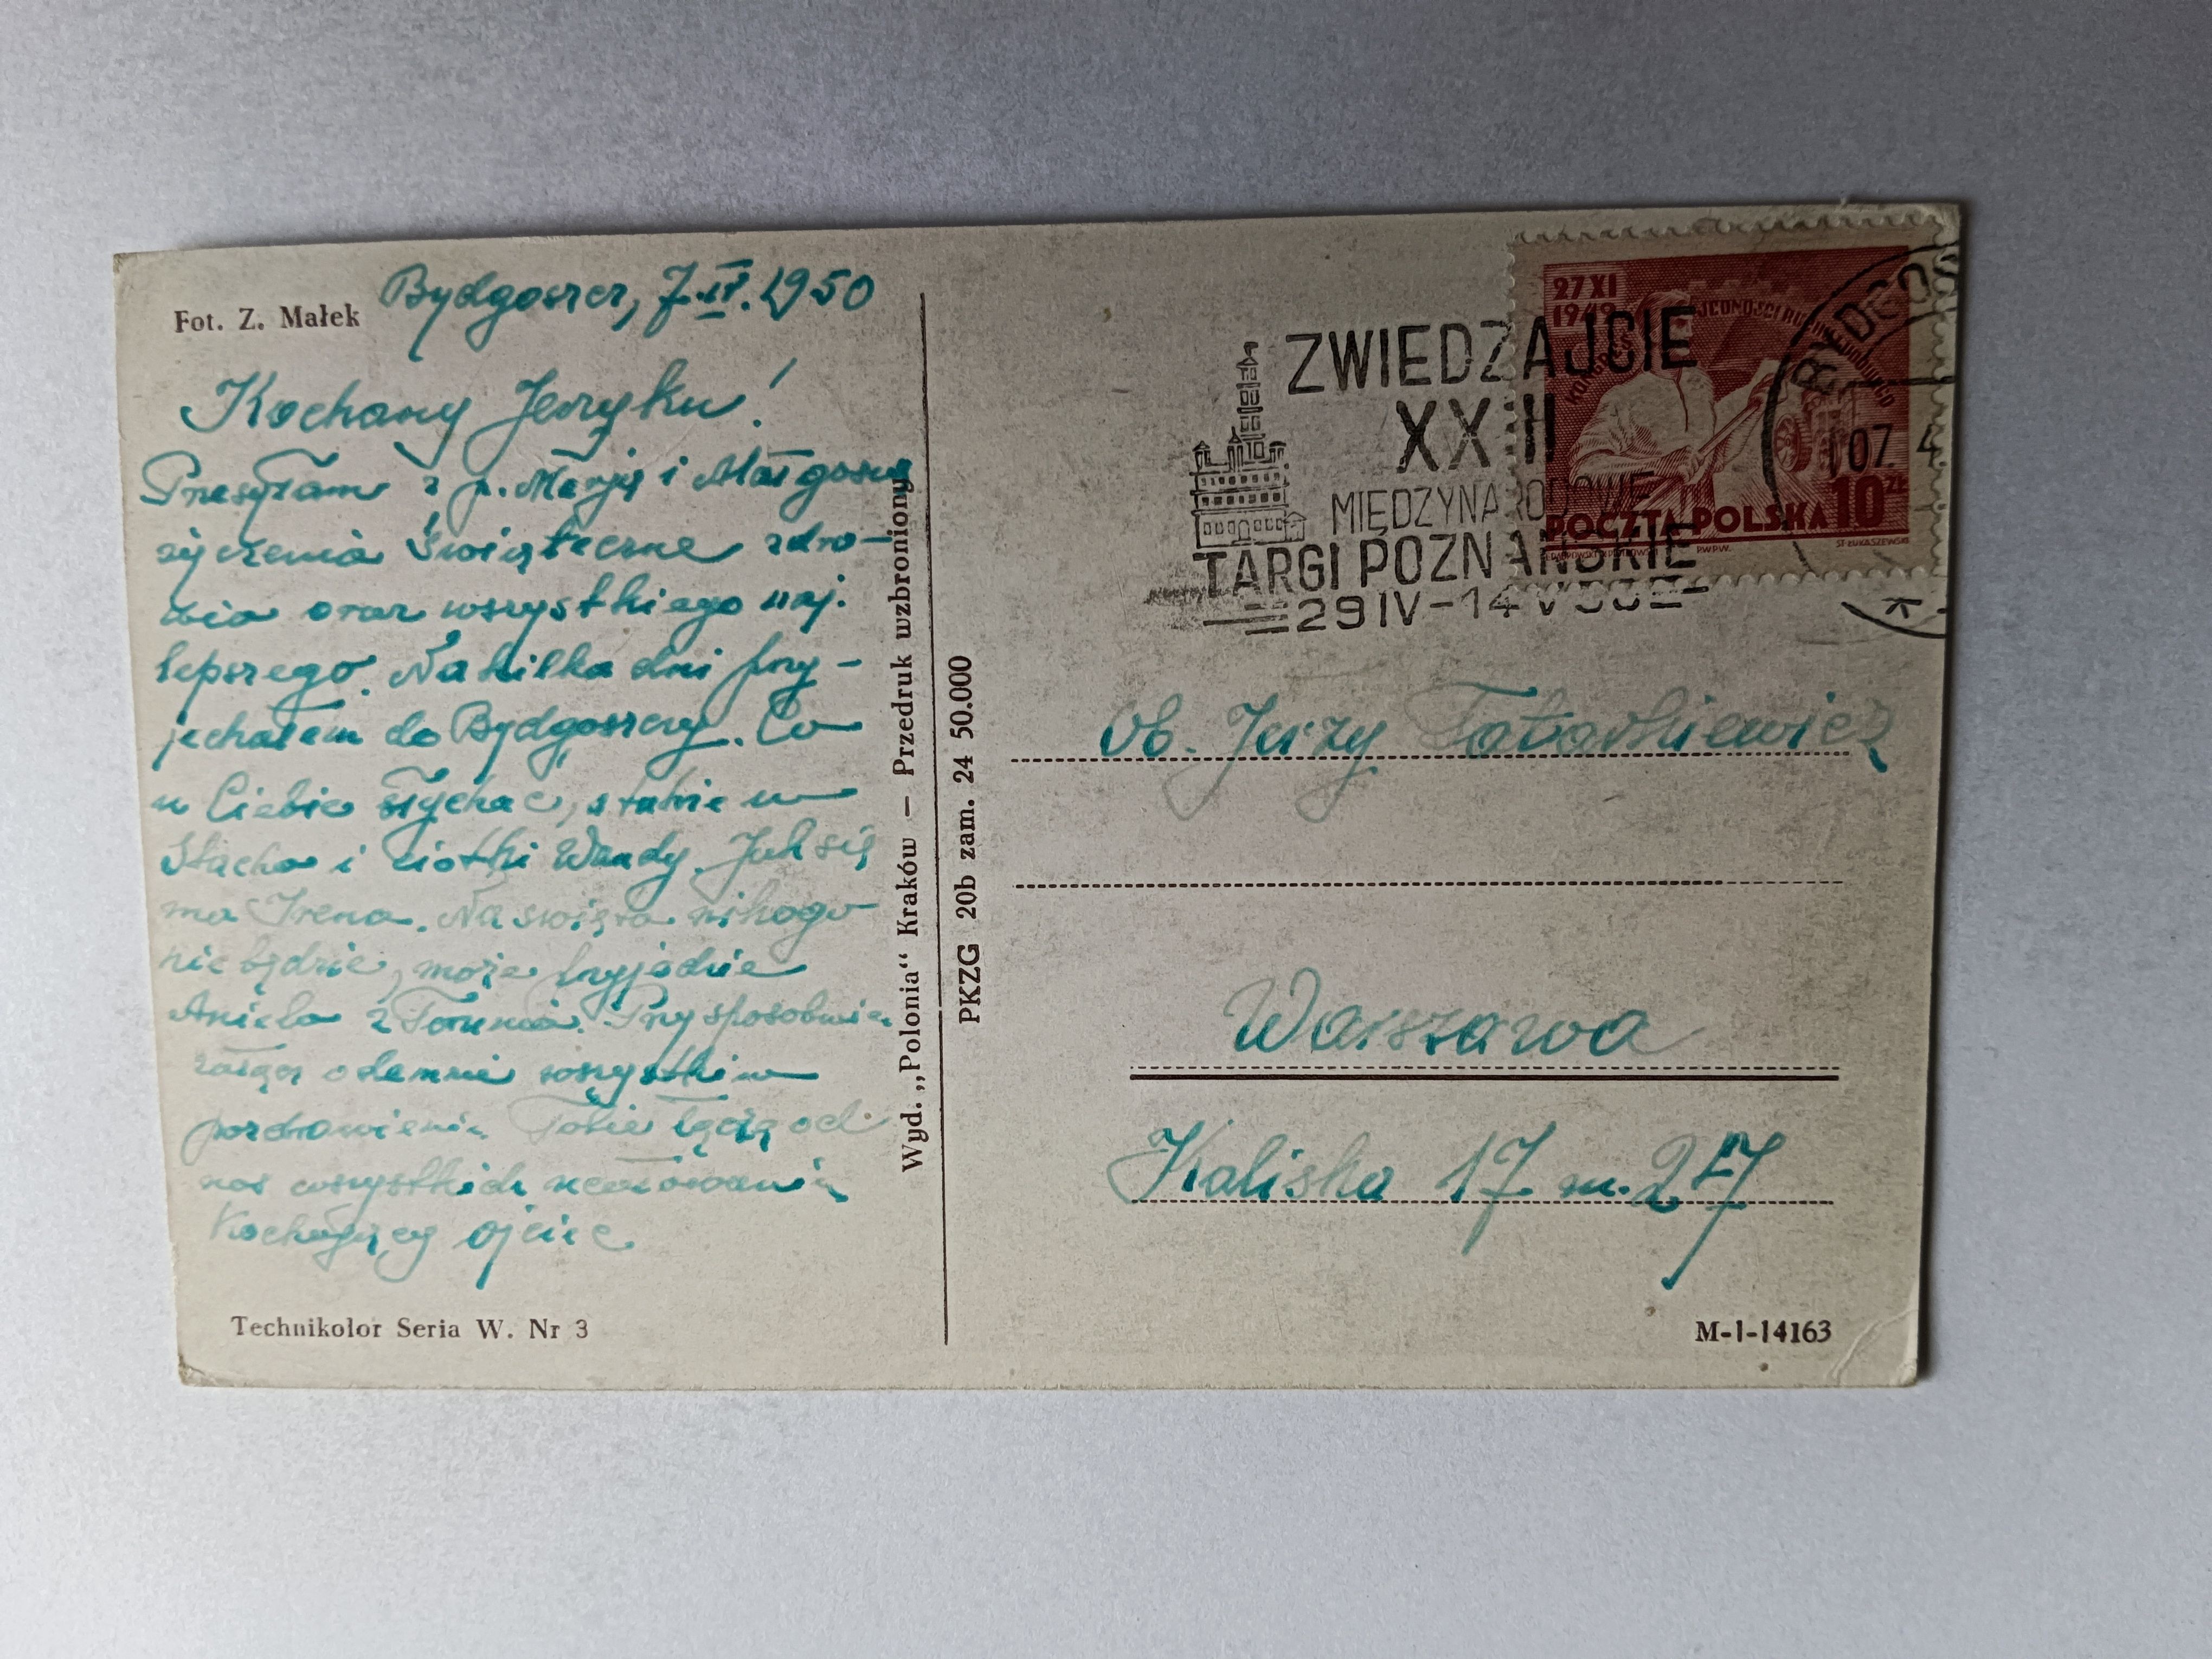 Fot. Z. Małek
Bydgoszcz, 7.IV.1950
Kochany Jerzyku!
Przesyłam z p. Marją i Małgosią
życzenia świąteczne zdro-
wia oraz wszystkiego naj-
lepszego. Na kilka dni przy-
jechałem do Bydgoszczy. Co
u Ciebie słychać, także u
Stacha i ciotki Wandy. Jak się
ma Irena. Na święta nikogo
nie będzie, może przyjedzie
Aniela z Torunia.
odemnie wszystkim
pozdrowienia Tobie łączę od
nas wszystkich ucałowania
Kochający ojciec
Technikolor Seria W. Nr 3
Wyd. „Polonia“ Kraków — Przedruk wzbroniony
PKZG 20b zam. 24 50.000
ZWIEDZAJCIE
XXIII
MIĘDZYNARODOWE
TARGI POZNAŃSKIE
29 IV – 14 V
27 XI
1949
KONGRES JEDNOŚCI RUCHU LUDOWEGO
POCZTA POLSKA 10 ZŁ
PWPW.
ST. ŁUKASZEWSKI
BYDGOS
07. 4
Ob. Jerzy Tatarkiewicz
Warszawa
Kaliska 17 m. 27
M-1-14163